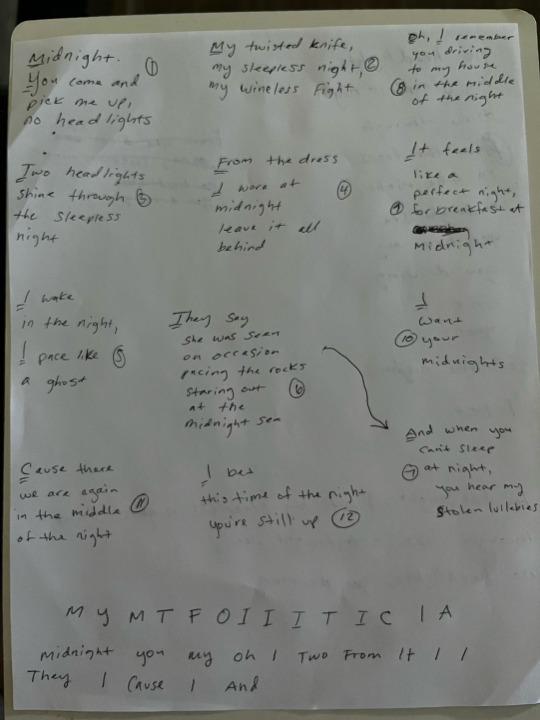 Midnight.
You come and
pick me up,
no headlights
①
My twisted knife,
my sleepless night, ②
my wineless fight
Oh, I remember
you driving
to my house
⑧ in the middle
of the night
Two headlights
shine through ③
the sleepless
night
From the dress
I wore at ④
midnight
leave it all
behind
It feels
like a
perfect night,
⑨ for breakfast at
Midnight
I wake
in the night,
I pace like ⑤
a ghost
They say
she was seen
on occasion
pacing the rocks
staring out ⑥
at the
midnight sea
I
want
⑩ your
midnights
And when you
can't sleep
⑦ at night,
you hear my
stolen lullabies
Cause there
we are again
in the middle ⑪
of the night
I bet
this time of the night
you're still up ⑫
M Y M T F O I I I T T I C I A
Midnight you my oh I Two From It I I
They I Cause I And